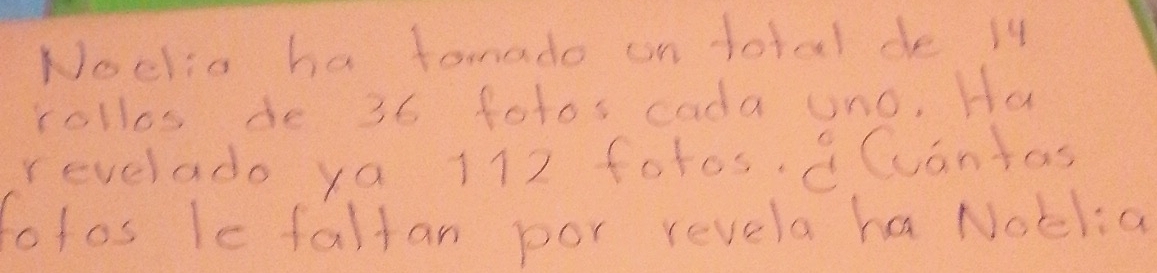 Noelia ha tomado un total de 14
rollos de 36 fotos cada uno. Ha
revelado ya 112 fotos. ¿Cuántas
fotos le faltan por revela ha Noelia